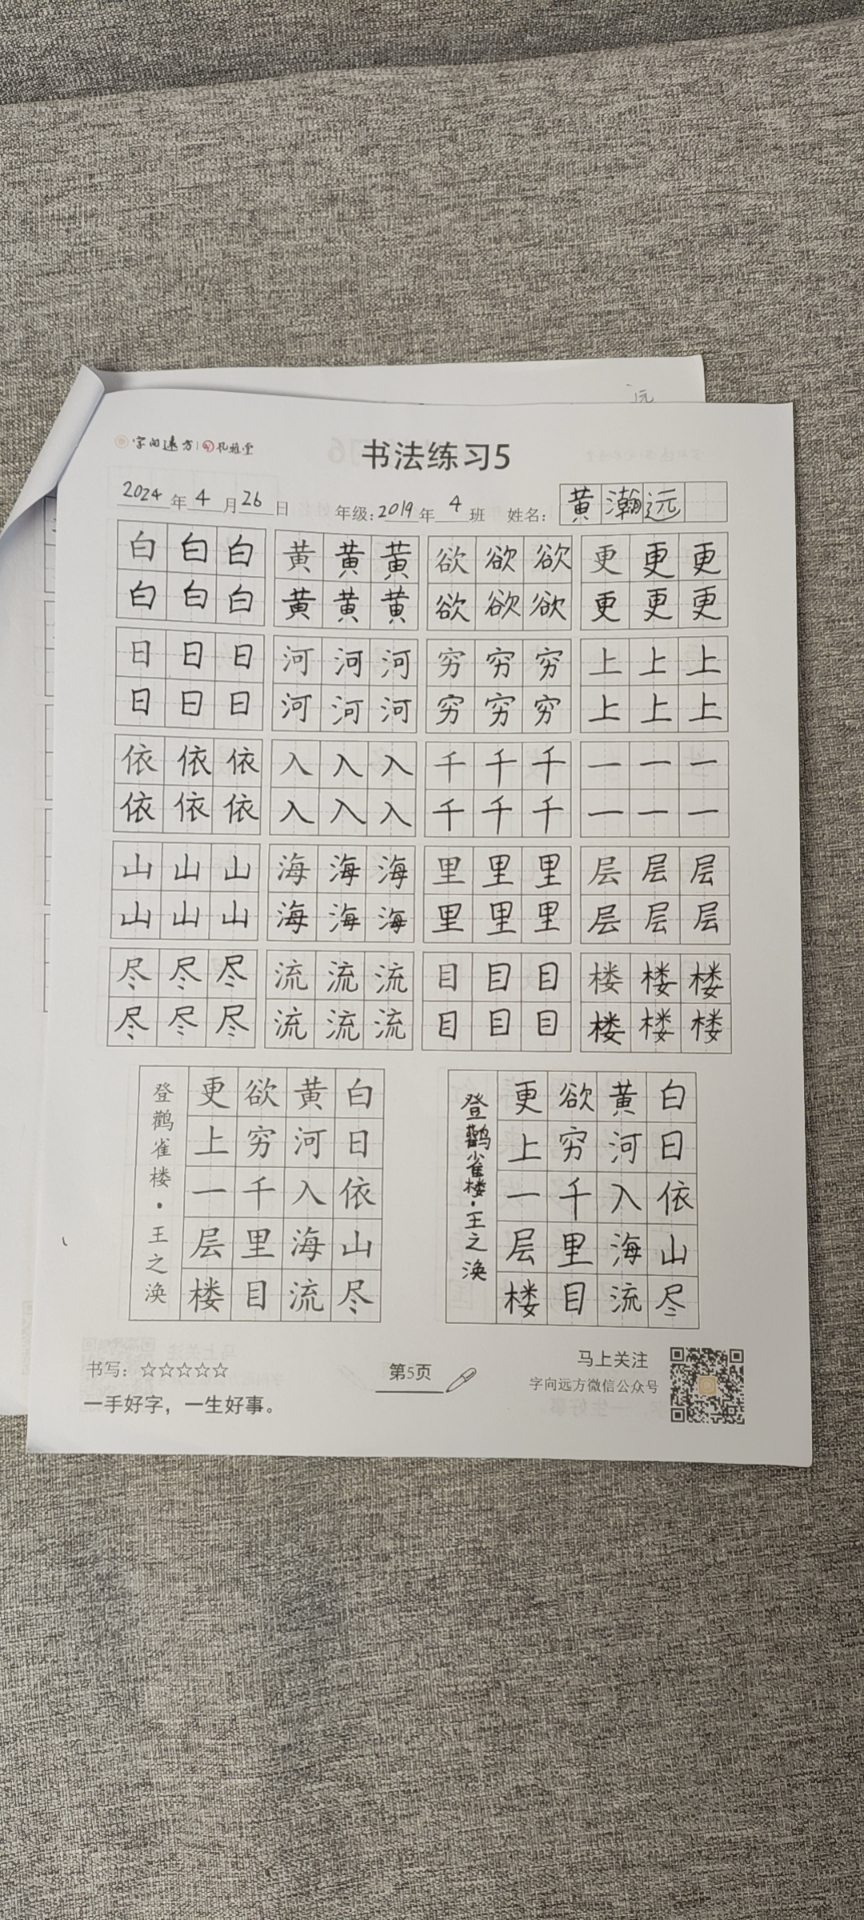 远
字向远方 孔雅堂
书法练习5
2024年4月26日 年级:2019年4班 姓名: 黄瀚远
白白白 黄黄黄 欲欲欲 更更更
白白白 黄黄黄 欲欲欲 更更更
日日日 河河河 穷穷穷 上上上
日日日 河河河 穷穷穷 上上上
依依依 入入入 千千千 一一一
依依依 入入入 千千千 一一一
山山山 海海海 里里里 层层层
山山山 海海海 里里里 层层层
尽尽尽 流流流 目目目 楼楼楼
尽尽尽 流流流 目目目 楼楼楼
白日依山尽
黄河入海流
欲穷千里目
更上一层楼
登鹳雀楼·王之涣
白日依山尽
黄河入海流
欲穷千里目
更上一层楼
登鹳雀楼·王之涣
书写：☆☆☆☆☆
一手好字，一生好事。
第5页
马上关注
字向远方微信公众号